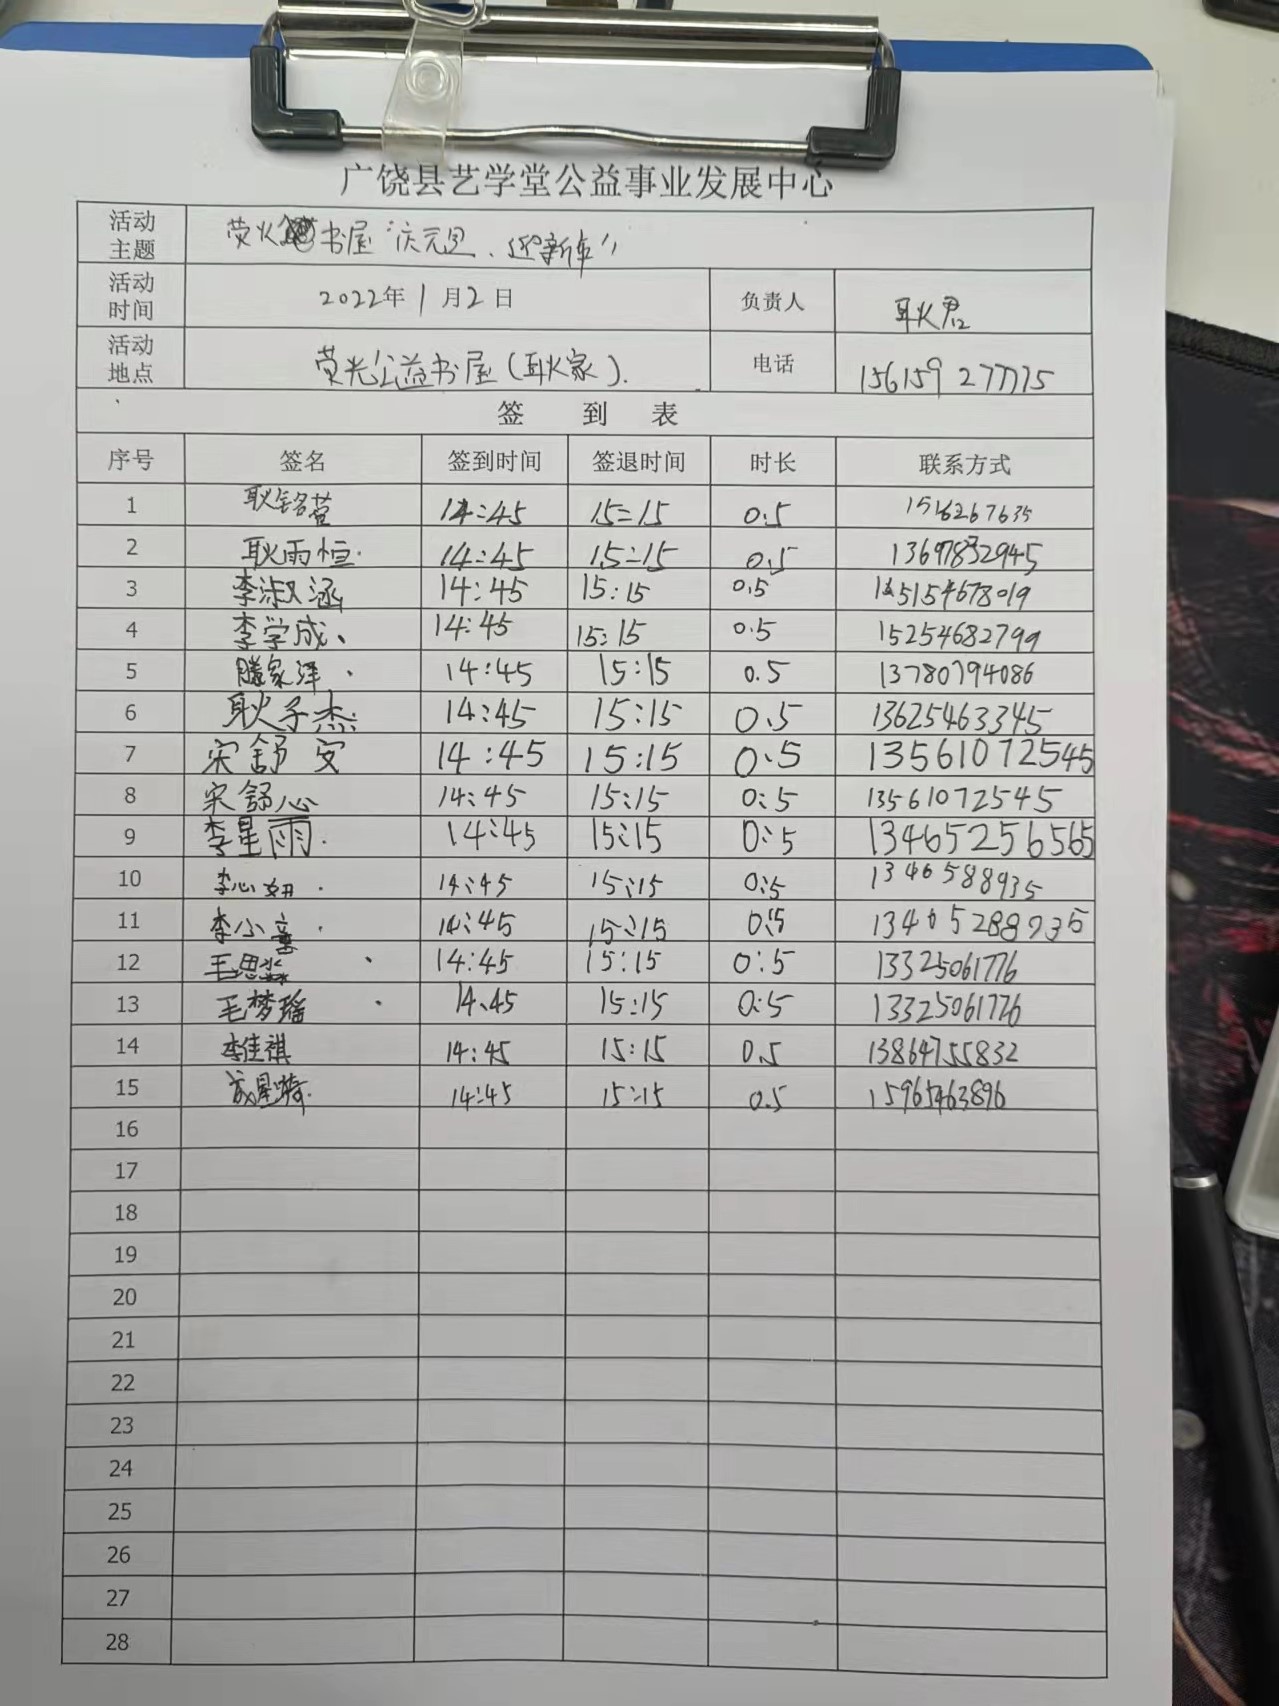 广饶县艺学堂公益事业发展中心
活动主题 荧火 书屋“庆元旦、迎新年”
活动时间 2022年1月2日 负责人 耿君
活动地点 荧光公益书屋(耿家). 电话
签 到 表
序号 签名 签到时间 签退时间 时长 联系方式
1 耿铭萱 14:45 15:15 0.5 1516267635
2 耿雨恒 14:45 15:15 0.5
3 李淑涵 14:45 15:15 0.5
4 李学成 14:45 15:15 0.5 15254682799
5 滕家泽 14:45 15:15 0.5 13780794086
6 耿子杰 14:45 15:15 0.5 13625463345
7 宋舒安 14:45 15:15 0.5 13561072545
8 宋舒心 14:45 15:15 0:5 13561072545
9 李星雨 14:45 15:15 0:5 13465256565
10 李心妍 14:45 15:15 0:5 1346588935
11 李小 14:45 15:15 0:5
12 毛思 14:45 15:15 0:5 13325061776
13 毛梦瑶 14:45 15:15 0:5 13325061776
14 李佳祺 14:45 15:15 0.5 13864755832
15 14:45 15:15 0.5 15965463896
16
17
18
19
20
21
22
23
24
25
26
27
28